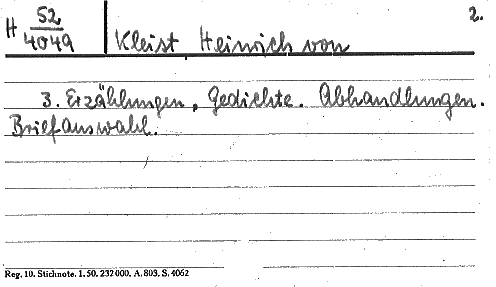 H 52/4049 Kleist Heinrich von 2.
3. Erzählungen, Gedichte. Abhandlungen.
Briefauswahl.
Reg. 10. Stichnote. 1. 50. 232000. A. 803. S. 4062